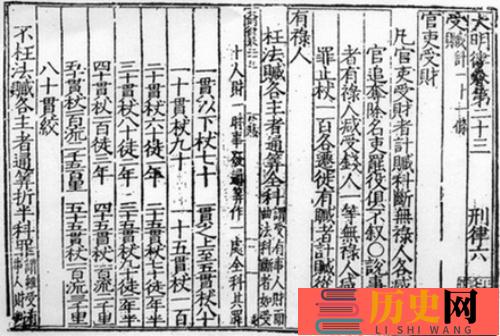 大明律卷第二十三 刑律六
受贓計一十一條
官吏受財
凡官吏受財者計贓科斷無祿人各減
官追奪除名吏罷役俱不敘○說事
者有祿人減受錢人一等無祿人減
罪止杖一百各遷徙有贓者計贓從
有祿人
枉法贓各主者通算全科謂受有事人財而曲法科斷者如受
十人財一時事發通算作一處全科其罪
一貫以下杖七十 一貫之上至五貫杖八十
一十貫杖九十 一十五貫杖一百
二十貫杖六十徒一年 二十五貫杖七十徒一年半
三十貫杖八十徒二年 三十五貫杖九十徒二年半
四十貫杖一百徒三年 四十五貫杖一百流二千里
五十貫杖一百流二千五百里 五十五貫杖一百流三千里
八十貫絞
不枉法贓各主者通算折半科罪謂雖受有事人財
历史网
LI SHI WANG